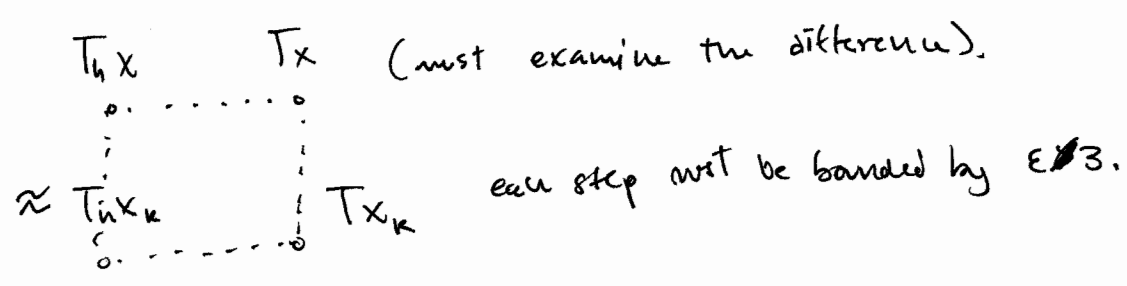 Tₙx Tx (must examine the difference).
≈ Tₙxₖ Txₖ each step must be bounded by ε/3.